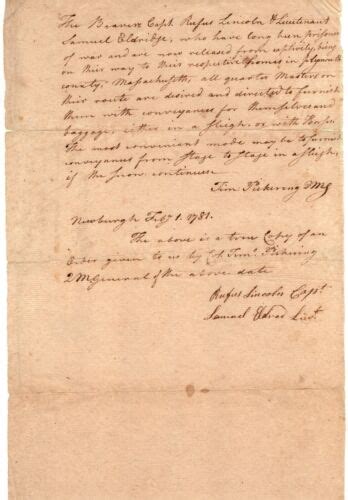 The Bearers Capt. Rufus Lincoln & Lieutenant
Samuel Eldridge, who have long been prisoners
of war and are now released from captivity, being
on their way to their respective homes in plymouth
county, Massachusetts, all quarter Masters on
their route are desired and directed to furnish
them with conveyances for themselves and
baggage, either in a sleigh, or with Horses
The most convenient mode may be to furnish
conveyances from stage to stage in a sleigh,
if the snow continues.
Tim. Pickering QMG
Newburgh Feby 1. 1781.
The above is a true Copy of an
Order given to us by Col. Timo. Pickering
QMGeneral of the above date
Rufus Lincoln Capt.
Samuel Eldred Lieut.